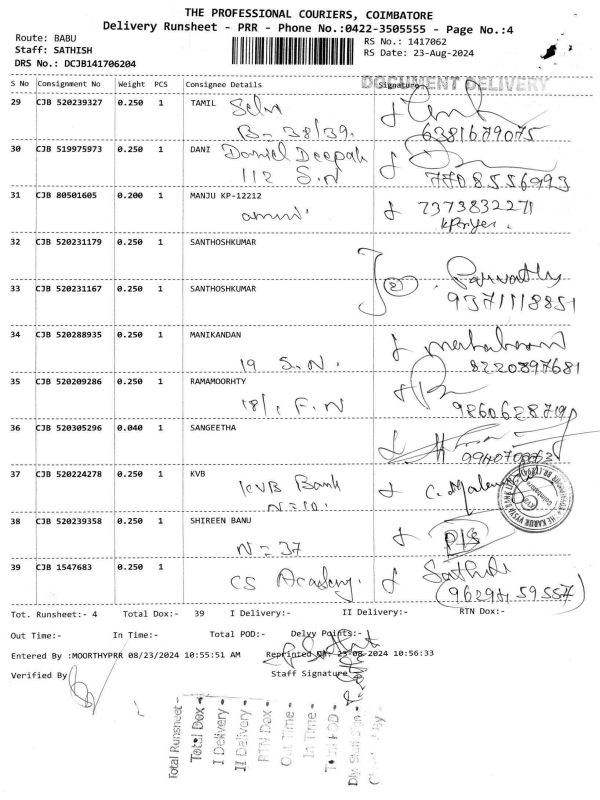 THE PROFESSIONAL COURIERS, COIMBATORE
Delivery Runsheet - PRR - Phone No.:0422-3505555 - Page No.:4
Route: BABU
Staff: SATHISH
DRS No.: DCJB141706204
RS No.: 1417062
RS Date: 23-Aug-2024
DOCUMENT DELIVERY
S No Consignment No Weight PCS Consignee Details Signature
29 CJB 520239327 0.250 1 TAMIL
B- 38/39.
6381679075
30 CJB 519975973 0.250 1 DANI Daniel Deepak
112 S.N
7708556993
31 CJB 80501605 0.200 1 MANJU KP-12212
7373832271
32 CJB 520231179 0.250 1 SANTHOSHKUMAR
2 Parvathy
33 CJB 520231167 0.250 1 SANTHOSHKUMAR
9371118851
34 CJB 520288935 0.250 1 MANIKANDAN
19 S.N.
8220897681
35 CJB 520209286 0.250 1 RAMAMOORHTY
18/1 F.N
36 CJB 520305296 0.040 1 SANGEETHA
37 CJB 520224278 0.250 1 KVB
KVB Bank
38 CJB 520239358 0.250 1 SHIREEN BANU
N = 37
39 CJB 1547683 0.250 1
CS Academy.
9629459557
Tot. Runsheet:- 4 Total Dox:- 39 I Delivery:- II Delivery:- RTN Dox:-
Out Time:- In Time:- Total POD:- Delvy Points:-
Entered By :MOORTHYPRR 08/23/2024 10:55:51 AM Reprinted On: 23-08-2024 10:56:33
Verified By Staff Signature
Total Runsheet -
Total Dox -
I Delivery -
II Delivery -
RTN Dox -
Out Time -
In Time -
Total POD -
Dly Staff Sign -